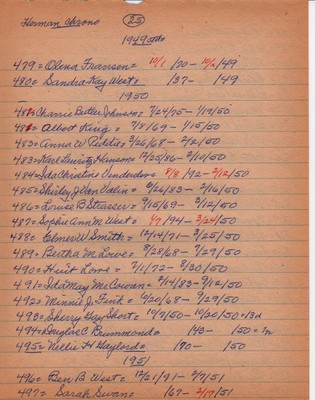 Herman Chrono 25
1949
479 = Olena Franson = 10/1 /70 - 10/2/49
480 = Sandra Kay West = /37 - /49
1950
481 = Charrie Butler Johnson = 7/24/75 - 1/19/50
482 = Albert King = 7/8/69 - 1/15/50
483 = Anna W. = 3/26/68 - 2/2/50
483 = Karl Lauritz Hanson = 12/25/86 - 2/10/50
484 = Ida Christine = 8/8 /92 - 2/12/50
485 = Shirley J Van Valin = 6/26/83 - 2/16/50
486 = Louise B. Strasser = 7/15/69 - 7/12/50
487 = Sophie Ann M. West = 1/7 /94 - 3/24/50
488 = Elmer W Smith = 12/14/71 - 3/25/50
489 = Bertha M. Lowe = 8/28/68 - 7/29/50
490 = Hiit Lowe = 7/11/72 - 8/30/50
491 = Ida May McCowan = 2/14/83 - 9/12/50
492 = Minnie J. Fink = 4/20/68 - 9/29/50
493 = Sherry Day Short = 10/7/50 - 10/20/50 = 13d
494 = Douglas C. Brummond = /43 - /50 =
495 = Nellie H Haylord = /80 - /50
1951
496 = Ben B. West = 12/21/91 - 2/7/51
497 = Sarah Swan = /67 - 2/17/51